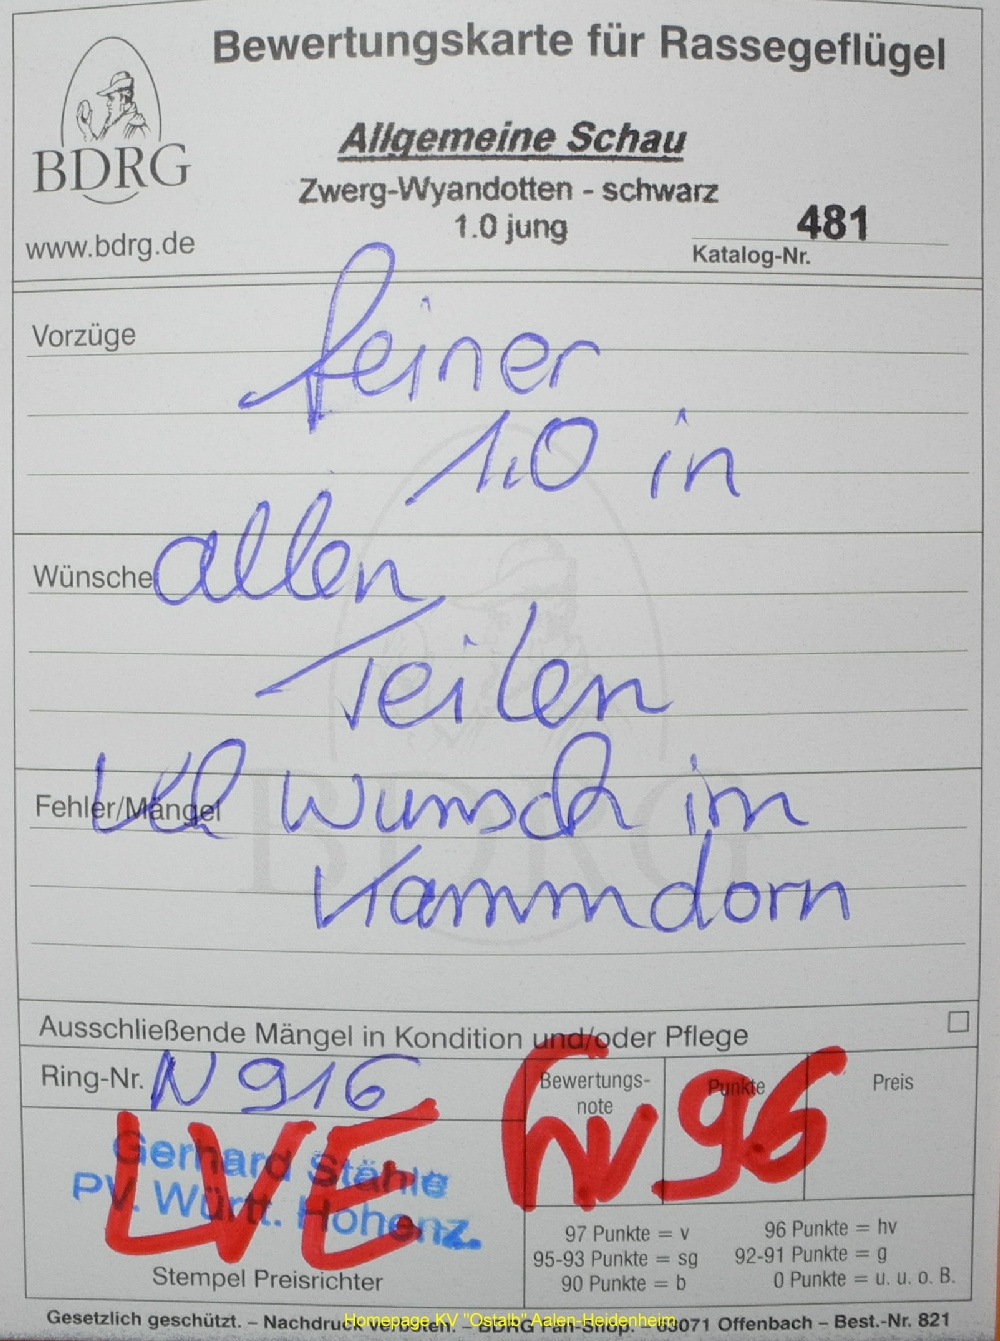 Bewertungskarte für Rassegeflügel
BDRG
www.bdrg.de
Allgemeine Schau
Zwerg-Wyandotten - schwarz
1.0 jung
481
Katalog-Nr.
Vorzüge
feiner
1,0 in
Wünsche allen
Teilen
Fehler/Mängel
Wunsch im
Kammdorn
BDRG
Ausschließende Mängel in Kondition und/oder Pflege
Ring-Nr. N 916
Bewertungs-
note
hv
Punkte
96
Preis
LVE
Gerhard Stähle
PV. Württ. Hohenz.
Stempel Preisrichter
97 Punkte = v
96 Punkte = hv
95-93 Punkte = sg
92-91 Punkte = g
90 Punkte = b
0 Punkte = u. u. o. B.
Gesetzlich geschützt. – Nachdruck verboten. – BDRG Fan-Shop. – 63071 Offenbach – Best.-Nr. 821
Homepage KV "Ostalb" Aalen-Heidenheim